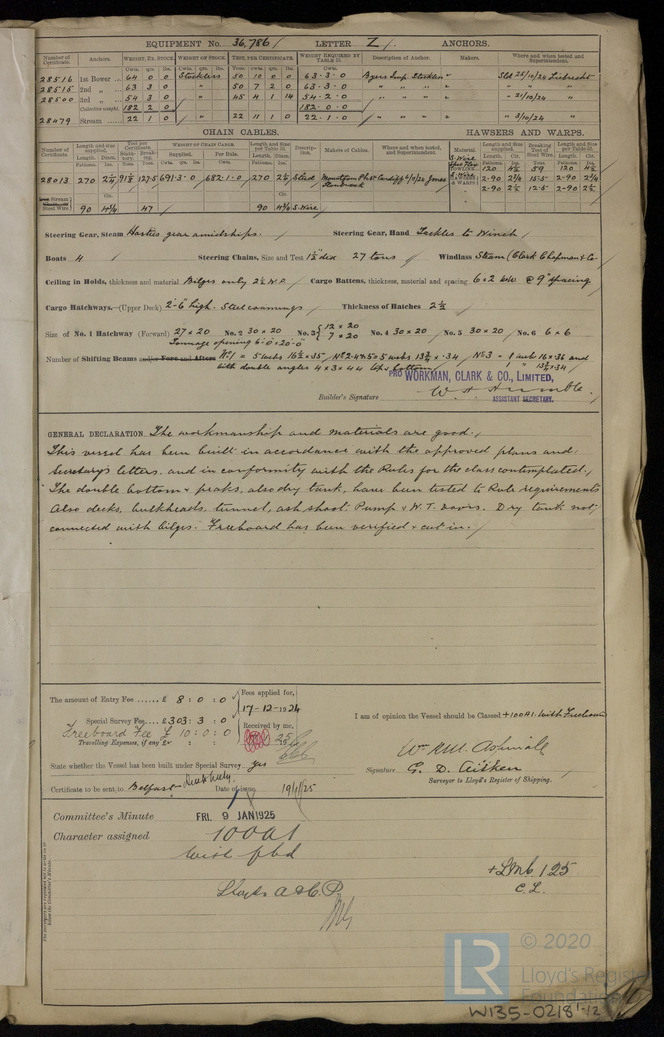 EQUIPMENT No. 36,786 LETTER Z ANCHORS.
Number of Certificate. Anchors. WEIGHT, EX. STOCK WEIGHT OF STOCK. TEST, PER CERTIFICATE. WEIGHT REQUIRED BY TABLE 31. Description of Anchor. Makers. Where and when tested and Superintendent.
28516 1st Bower 64 0 0 Stockless 50 10 0 0 63.3.0 Byers Imp. Stockless " Sld 25/10/24
28515 2nd " 63 3 0 " 50 7 2 0 63.3.0 " " " "
28500 3rd " 54 3 0 " 45 4 1 14 54.2.0 " " " " " 21/10/24 "
Collective weight 182 2 0 182.0.0
28479 Stream 22 1 0 " 22 11 1 0 22.1.0 " " " " 3/10/24 "
CHAIN CABLES. HAWSERS AND WARPS.
Number of Certificate. Length and size supplied. Test per Certificate WEIGHT OF CHAIN CABLE Supplied. Per Rule. Length and Size per Table 31. Description. Makers of Cables. Where and when tested, and Superintendent. Material. Length and Size supplied. Breaking Test of Steel Wire. Length and Size per Table 31.
28013 270 691.3.0 682.1.0 270 Stud Cardiff Jones
TOWLINE 120 4½ 59 120 4½
2-90 2¾ 15.5 2-90 2¾
& WARPS 2-90 2½ 12.5 2-90 2½
Stream Steel Wire 90 4¾ 47 90 4¾ S. Wire
Steering Gear, Steam Hasties gear amidships. Steering Gear, Hand Tackles to Winch
Boats 4 Steering Chains, Size and Test dia 27 tons Windlass Steam (Clark Chapman & Co
Ceiling in Holds, thickness and material Bilges only 2½ W.P. Cargo Battens, thickness, material and spacing 6 x 2 @ 9" spacing
Cargo Hatchways.—(Upper Deck) 2'-6" high. Steel coamings Thickness of Hatches 2½
Size of No. 1 Hatchway (Forward) 27 x 20 No. 2 30 x 20 No. 3 { 12 x 20 7 x 20 No. 4 30 x 20 No. 5 30 x 20 No. 6 6 x 6
Tonnage opening 6'-0" x 20'-0"
Number of Shifting Beams and/or Fore and Afters No 1 = 5 webs 16½ x .35 No 2.4 & 5 = 5 webs 13¾ x .34 No 3 = 1 web 16 x .36 and
with double angles 4 x 3 x .44 top & bottom " 13¾ x .34
PRO WORKMAN, CLARK & CO., LIMITED,
Builder's Signature
ASSISTANT SECRETARY.
GENERAL DECLARATION The workmanship and materials are good.
This vessel has been built in accordance with the approved plans and
Secretary's letters, and in conformity with the Rules for the class contemplated.
The double bottom & peaks, also dry tank, have been tested to Rule requirements
Also decks, bulkheads, tunnel, ash shoot. Pump & W.T. Doors. Dry tank not
connected with bilges. Freeboard has been verified & cut in.
The amount of Entry Fee £ 8 : 0 : 0 Fees applied for,
17-12-1924
Special Survey Fee £ 303 : 3 : 0
Freeboard Fee £ 10 : 0 : 0 Received by me,
Travelling Expenses, if any £ : :
I am of opinion the Vessel should be Classed +100A1. With Freeboard
State whether the Vessel has been built under Special Survey. yes
Signature G. D. Aitken
Surveyor to Lloyd's Register of Shipping.
Certificate to be sent to Belfast Date of issue 19/1/25
Committee's Minute FRI. 9 JAN 1925
Character assigned 100A1
with fbd
Lloyds A & C. P.
+LMC 1.25
C.L.
LR
© 2020
Lloyd's Register
Foundation
W135-0218 1-12